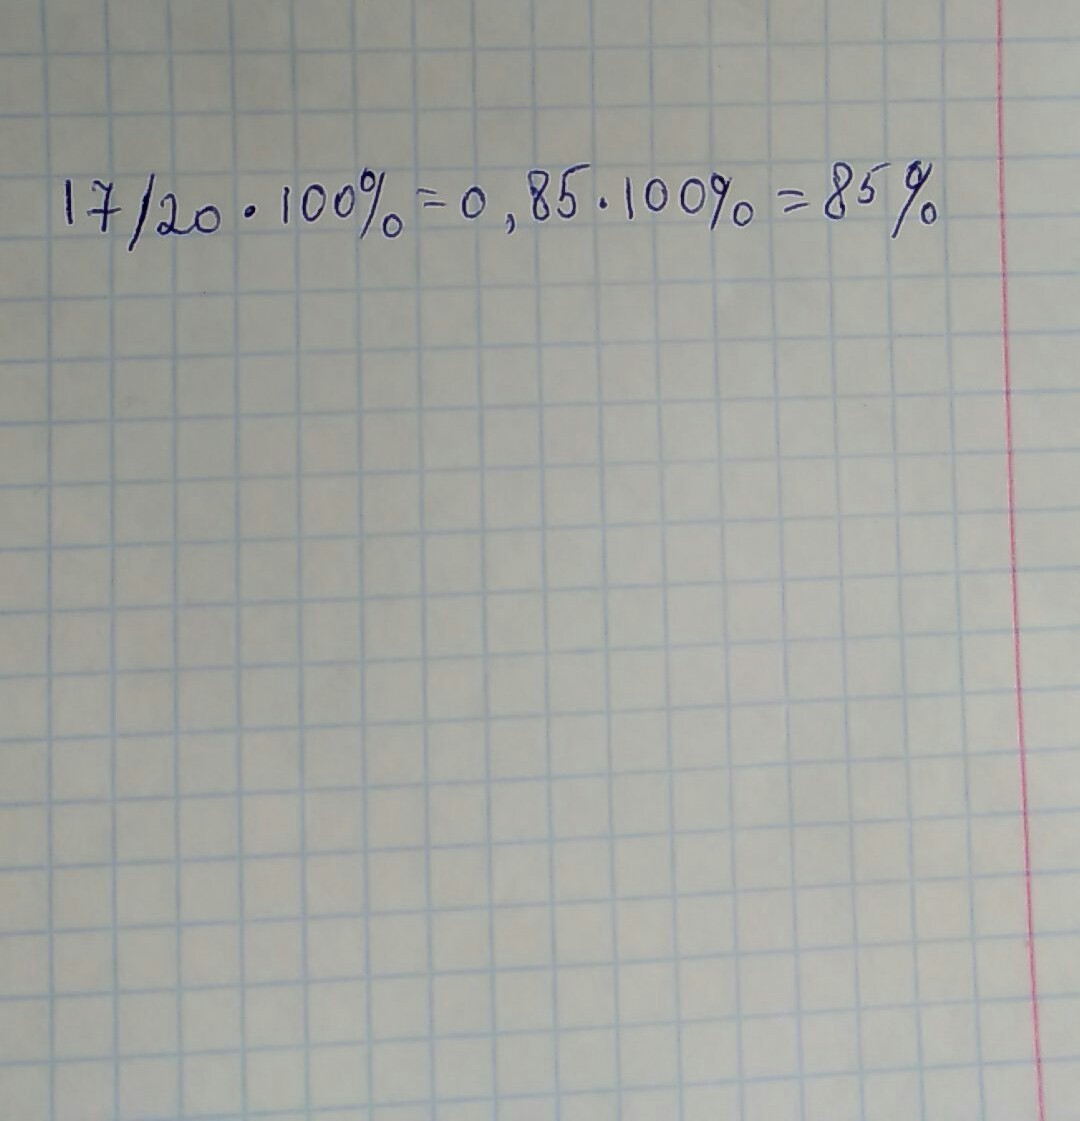 17/20 · 100% = 0,85 · 100% = 85%